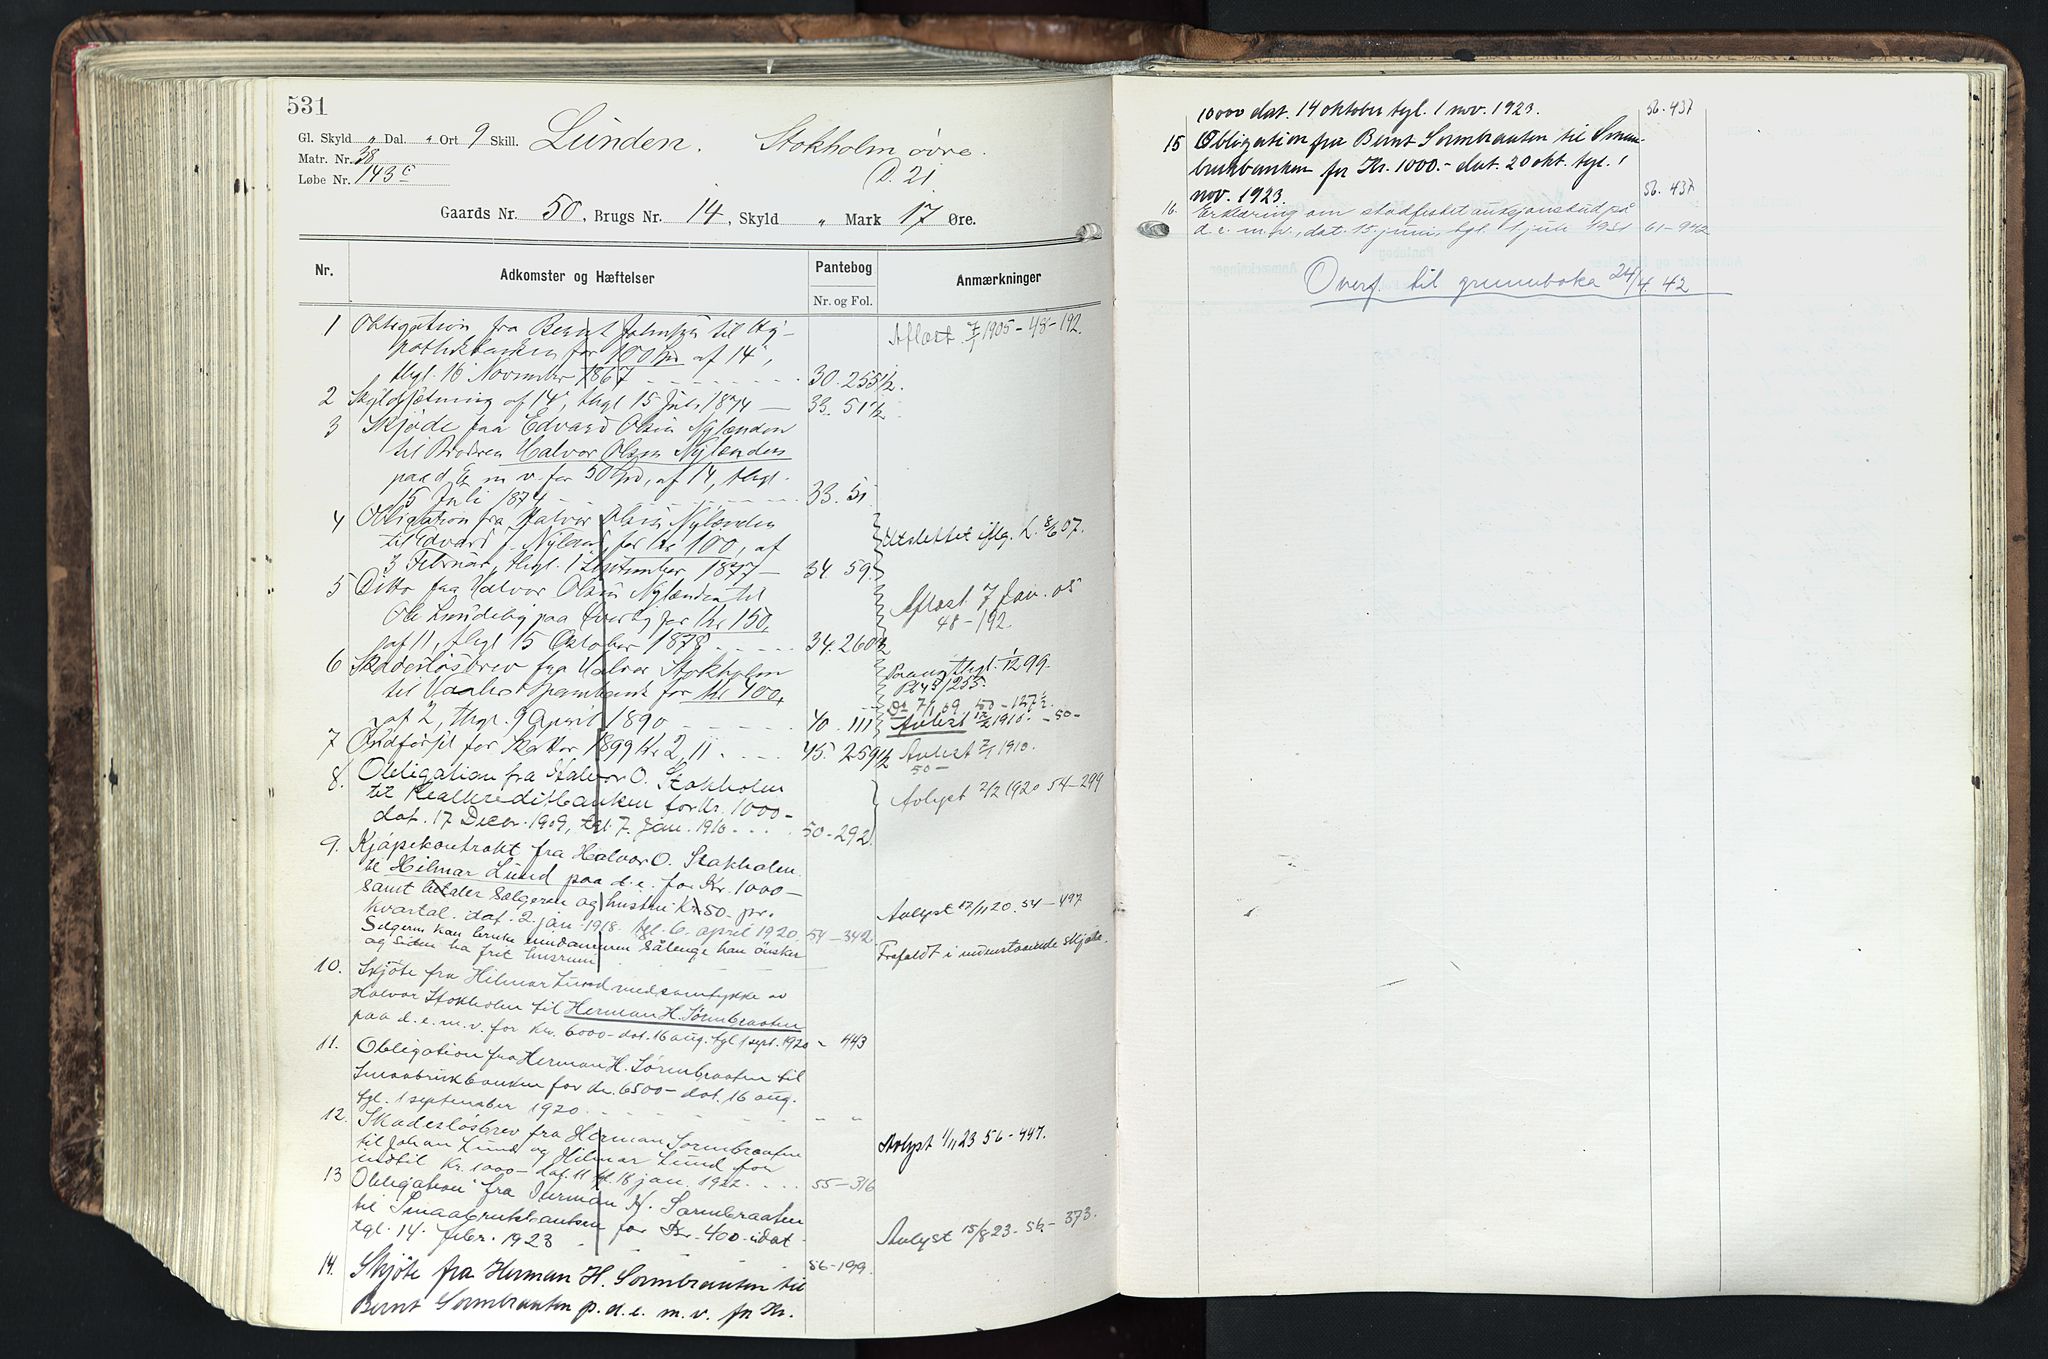 531
Gl. Skyld „ Dal. „ Ort 9 Skill. Lunden. Stokholm övre.
Matr. Nr. 38
Løbe Nr. 143 c D. 21.
Gaards Nr. 50, Brugs Nr. 14, Skyld „ Mark 17 Øre.
Nr. Adkomster og Hæftelser Pantebog Anmærkninger
Nr. og Fol.
1 Obligation fra Bernt Johnsen til Hy- Aflæst 7/1 1905 - 48 - 192.
pothekbanken for 100 Spd af 14,
thgl. 16 November 1867 30. 255 1/2.
2 Skyldsætning af 14, thgl 15 Juli 1874 33. 51 1/2
3 Skjøde fra Edvard Olsen Nylænden
til Brodren Halvor Olsen Nylænden
paa d. E. m. v. for 50 Spd, af 14, thgl.
15 Juli 1874 33. 51
4 Obligation fra Halvor Olsen Nylænden
til Edvard Nylænd, for Kr 100, af Udslettet iflg. L. 8/6 07.
3 Februar, thgl. 1 September 1877 34. 59.
5 Ditto fra Halvor Olsen Nylænden til
Ole Lundeby paa Everby for Kr 150, Aflæst 7 Jan. 05
af 11, thgl 15 Oktober 1878 34. 260 1/2 48 - 192.
6 Skadesløsbrev fra Halvor Stokholm
til Vaaler Sparebank for Kr 400, Pb 45/255.
af 2, thgl. 9 April 1890 40. 111 Avlæst 1910. - 50 -
7 Udførsel for Skatter 1899 Kr 2,11 45. 259 1/2 Avlæst 7/1 1910.
50 -
8. Obligation fra Halvor O. Stokholm
til Realkreditbanken for Kr. 1000 - Avlyst 2/2 1920 54 - 299
dat. 17 Decbr. 1909, tgl. 7. Jan. 1910 50 - 292
9. Kjøpekontrakt fra Halvor O. Stokholm
til Hilmar Lund paa d. e. for Kr. 1000 -
samt betaler Sælgeren og hustru Kr 50 - pr. Avlyst 17/11 20. 54 - 497
kvartal. dat. 2. jan 1918. tgl. 6. april 1920 54 - 342.
Selgeren kan bruke eiendommen sålenge han ønsker Frafaldt i nedenstaaende skjøte.
og siden ha frit husrum
10. Skjøte fra Hilmar Lund med samtykke av
Halvor Stokholm til Herman H. Sørmbraaten
paa d. e. m. v. for Kr. 6000 - dat. 16 aug. tgl 1 sept. 1920 „ 443
11. Obligation fra Herman H. Sørmbraaten til
Smaabrukbanken for kr. 6500 - dat. 16 aug.
tgl. 1 september 1920 „ „
12. Skadesløsbrev fra Herman Sørmbraaten
til Johan Lund og Hilmar Lund for Avlyst 1/11 23 56 - 447.
indtil Kr. 1000 - dat. 11 tgl 18 jan. 1922 55 - 316
13 Obligation fra Herman H. Sørmbraaten
til Smaabrukbanken for Kr. 400 - dat
tgl. 14. febr. 1923 Avlyst 15/8 23 - 56 - 373.
56 - 199.
14. Skjöte fra Herman H. Sørmbraaten til
Bernt Sørmbraaten p. d. e. m. v. for Kr.
10000 dat. 14 oktober tgl. 1 nov. 1923. 56. 437
15 Obligation fra Bernt Sormbraaten til Smaa-
brukbanken for Kr. 1000.- dat. 20 okt. tgl. 1
nov. 1923. 56. 437
16. Erklæring om stadfestet auksjonsbud på
d. e. m. v., dat. 15 juni, tgl. 1 juli 1931 61 - 942
Overf. til grunnboka 24/4. 42